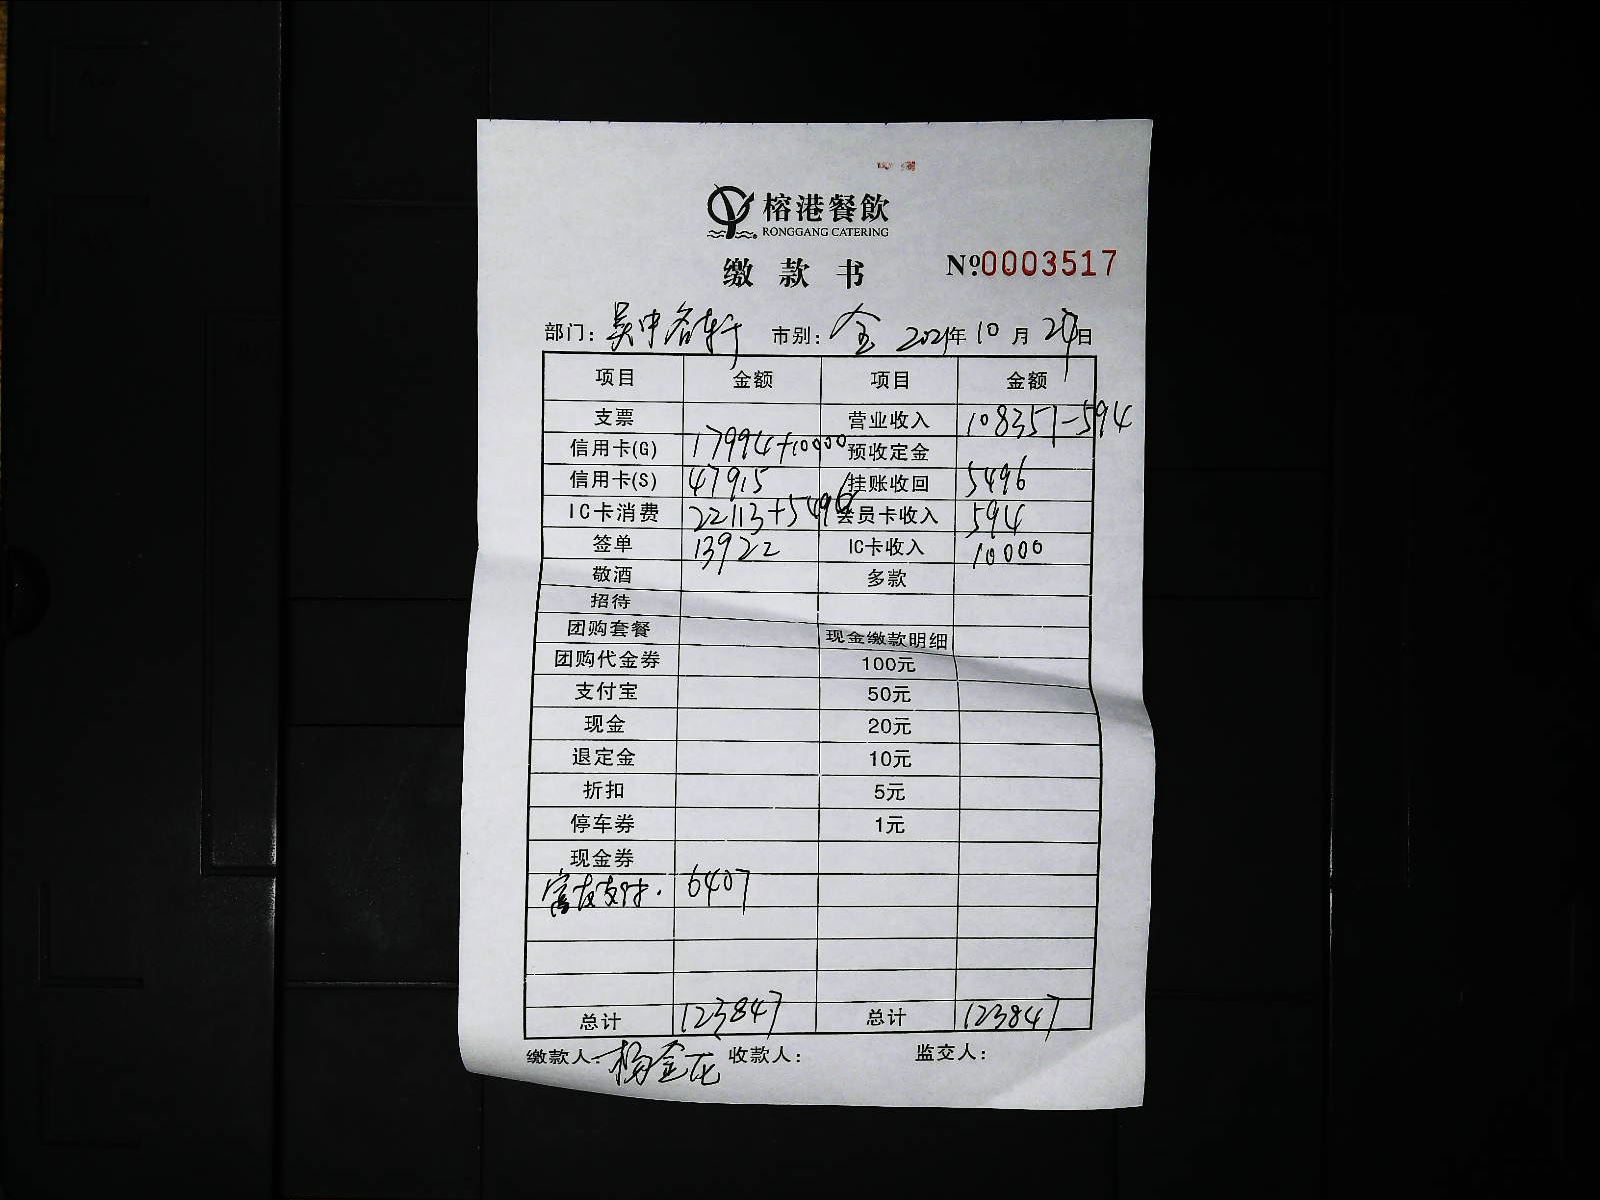 榕港餐飲
RONGGANG CATERING
缴款书 №0003517
部门：吴中名轩 市别：全 2021年10月 日
项目 金额 项目 金额
支票 营业收入 108351-594
信用卡(G) 17994+10000 预收定金
信用卡(S) 47915 挂账收回 5496
IC卡消费 22113+5496 会员卡收入 594
签单 13922 IC卡收入 10000
敬酒 多款
招待
团购套餐 现金缴款明细
团购代金券 100元
支付宝 50元
现金 20元
退定金 10元
折扣 5元
停车券 1元
现金券
富友支付. 6407
总计 123847 总计 123847
缴款人：杨金花 收款人： 监交人：